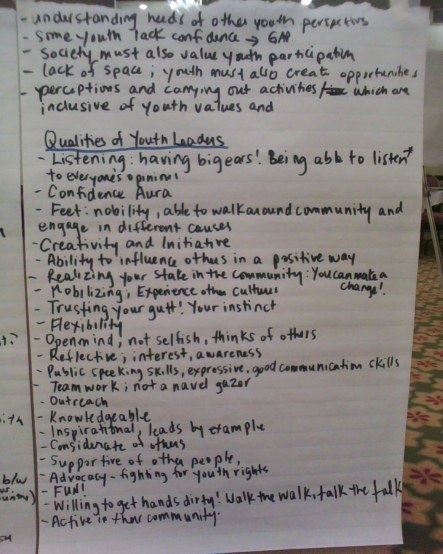 - understanding needs of other youth perspectives
- some youth lack confidence → GAP
- Society must also value youth participation
- lack of space; youth must also create opportunities
- perceptions and carrying out activities which are
inclusive of youth values and
Qualities of Youth Leaders
- Listening: having big ears! Being able to listen
to everyone's opinions
- Confidence Aura
- Feet: nobility, able to walk around community and
engage in different causes
- Creativity and Initiative
- Ability to influence others in a positive way
- Realizing your stake in the community: You can make a
change!
- Mobilizing; Experience other cultures
- Trusting your gutt! Your instinct
- Flexibility
- Openmind, not selfish, thinks of others
- Reflective, interest, awareness
- Public speeking skills, expressive, good communication ckills
- Team work; not a navel gazor
- Outreach
- Knowledgeable
- Inspirational, leads by example
- Considerate of others
- Supportive of other people,
- Advocacy - fighting for youth rights
- FUN!
- Willing to get hands dirty! Walk the walk, talk the talk
- Active in their community.
b/w